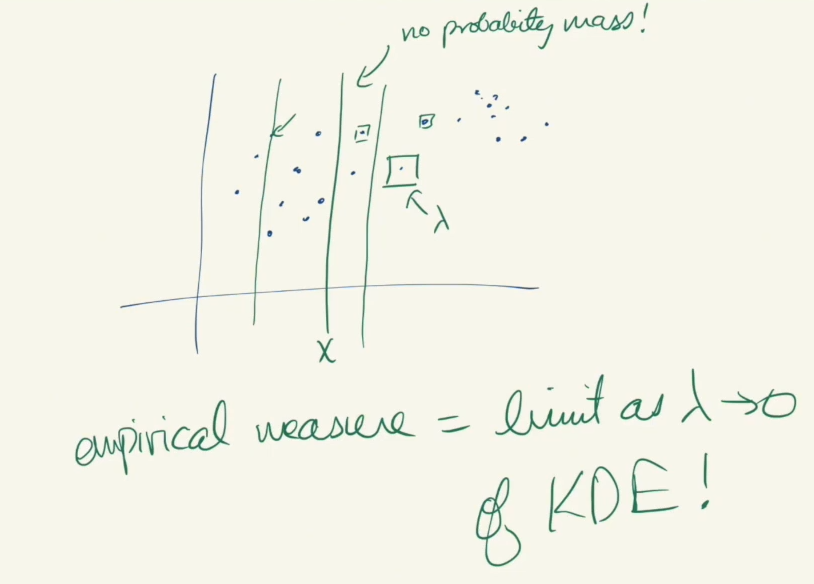 no probability mass!
λ
X
empirical measure = limit as λ→0
of KDE!